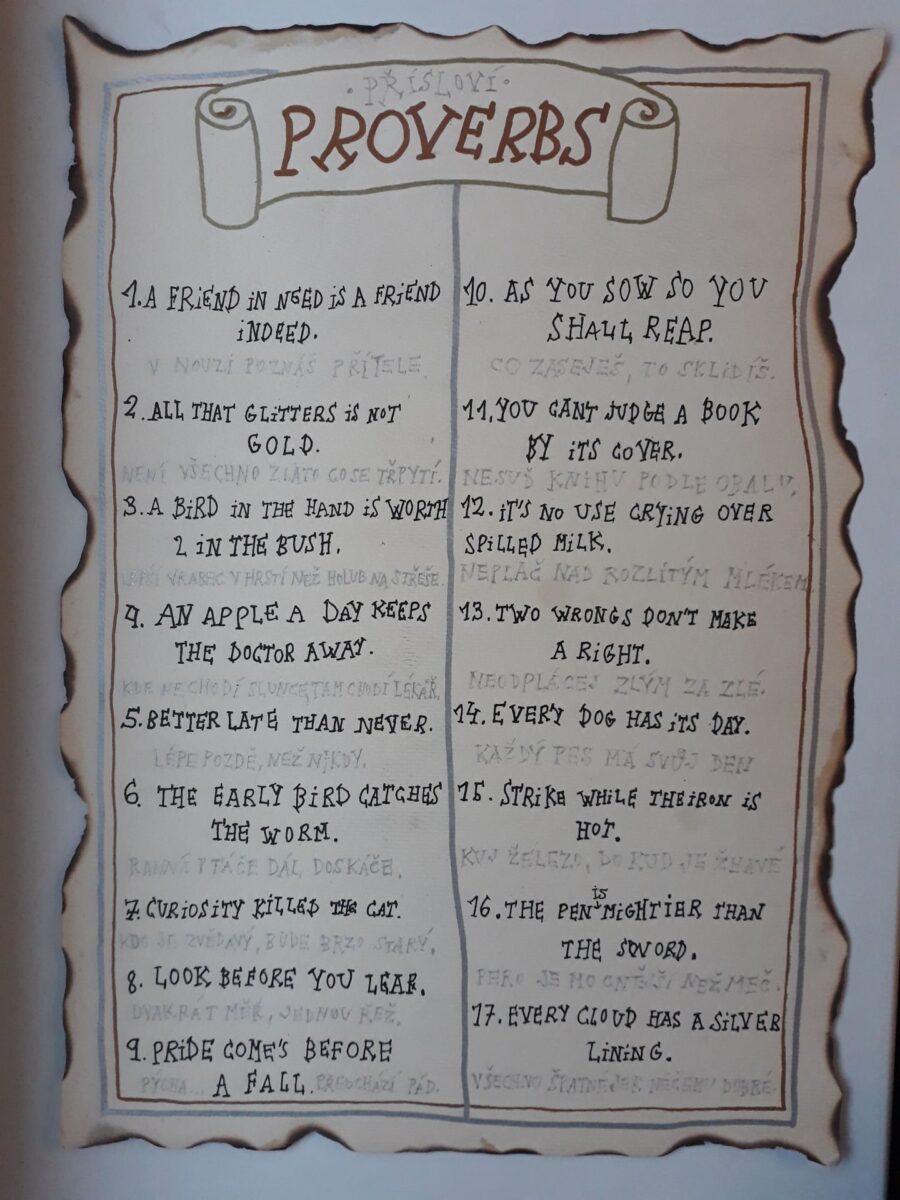 • PŘÍSLOVÍ •
PROVERBS
1. A FRIEND IN NEED IS A FRIEND
INDEED.
V NOUZI POZNÁŠ PŘÍTELE.
2. ALL THAT GLITTERS IS NOT
GOLD.
NENÍ VŠECHNO ZLATO CO SE TŘPYTÍ.
3. A BIRD IN THE HAND IS WORTH
2 IN THE BUSH.
LEPŠÍ VRABEC V HRSTI NEŽ HOLUB NA STŘEŠE.
4. AN APPLE A DAY KEEPS
THE DOCTOR AWAY.
KDE NECHODÍ SLUNCE, TAM CHODÍ LÉKAŘ.
5. BETTER LATE THAN NEVER.
LÉPE POZDĚ, NEŽ NIKDY.
6. THE EARLY BIRD CATCHES
THE WORM.
RANNÍ PTÁČE DÁL DOSKÁČE.
7. CURIOSITY KILLED THE CAT.
KDO JE ZVĚDAVÝ, BUDE BRZO STARÝ.
8. LOOK BEFORE YOU LEAP.
DVAKRÁT MĚŘ, JEDNOU ŘEŽ.
9. PRIDE COME'S BEFORE
A FALL.
PÝCHA... PŘEDCHÁZÍ PÁD.
10. AS YOU SOW SO YOU
SHALL REAP.
CO ZASEJEŠ, TO SKLIDÍŠ.
11. YOU CANT JUDGE A BOOK
BY ITS COVER.
NESUĎ KNIHU PODLE OBALU.
12. IT'S NO USE CRYING OVER
SPILLED MILK.
NEPLAČ NAD ROZLITÝM MLÉKEM.
13. TWO WRONGS DON'T MAKE
A RIGHT.
NEODPLÁCEJ ZLÝM ZA ZLÉ.
14. EVERY DOG HAS ITS DAY.
KAŽDÝ PES MÁ SVŮJ DEN
15. STRIKE WHILE THE IRON IS
HOT.
KUJ ŽELEZO, DO KUD JE ŽHAVÉ
16. THE PEN IS MIGHTIER THAN
THE SWORD.
PERO JE MOCNĚJŠÍ NEŽ MEČ.
17. EVERY CLOUD HAS A SILVER
LINING.
VŠECHNO ŠPATNÉ JE K NĚČEMU DOBRÉ.